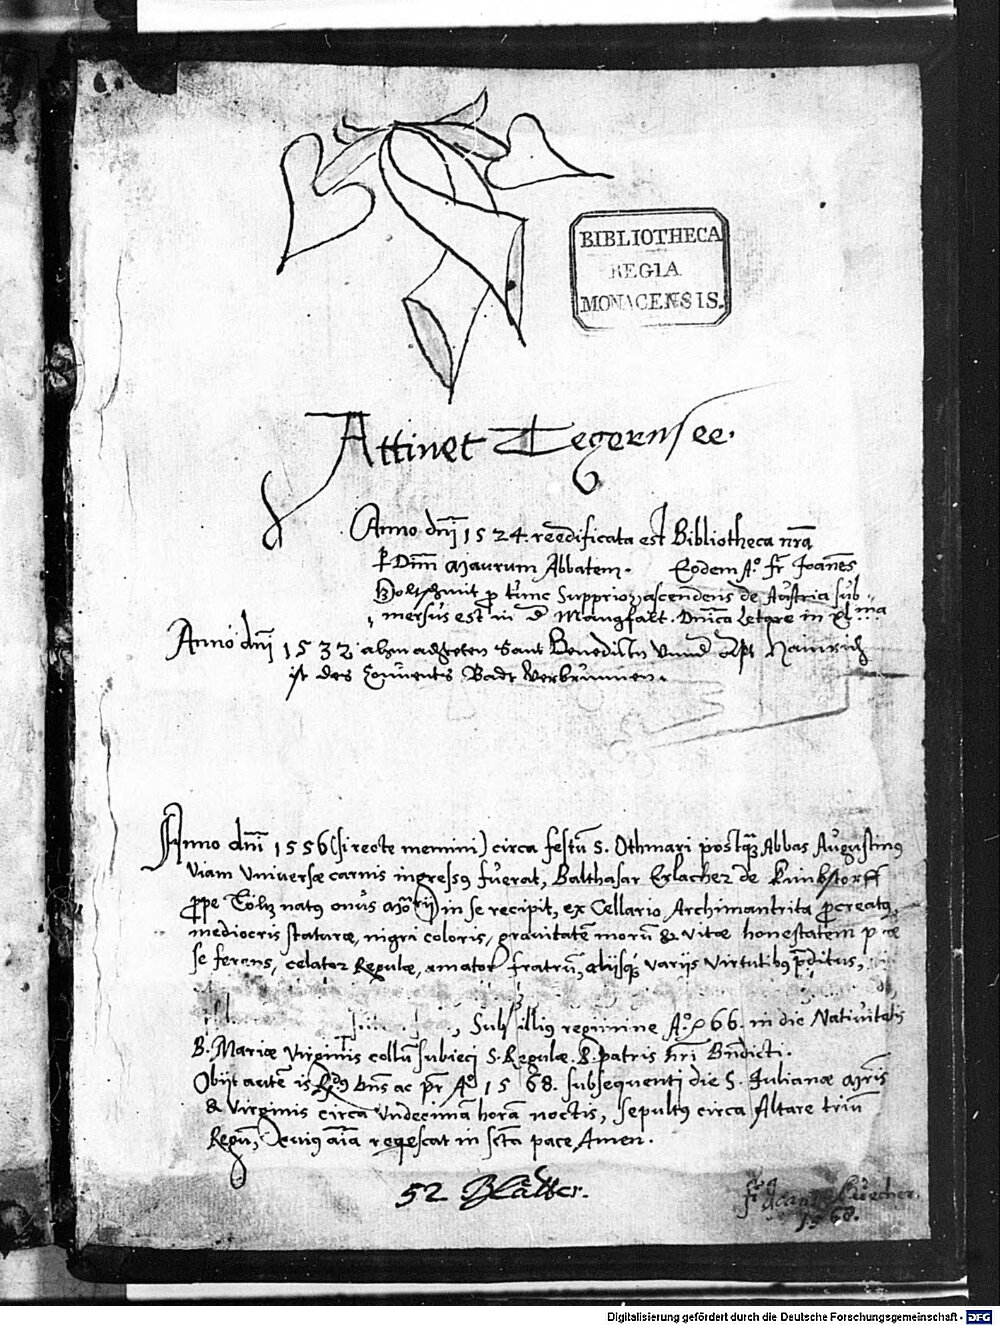 BIBLIOTHECA
REGIA
MONACENSIS.
Attinet Tegernsee.
Anno dnī 1524. reedificata est Bibliotheca nr̄a
p Dm̄ Maurum Abbatem. Eodem Aº. fr̄ Joanēs
Holtzmit p tūnc Supprior, ascendens de Austria sub,,
,mersus est in Mangfalt. Dnīca Letare in xl.ma
Anno dnī 1532 Sant Benedictn vnnd Apt Hainrich
ist des Convents Badt verbrunnen.
Anno dnī 1556 (si recte memini) circa festū S. Othmari postqz Abbas Augustinus
viam Universæ carnis ingressus fuerat, Balthasar Erlacher de
ppe Töltz natus onus in se recipit, ex Cellario Archimandrita pcreatus,
mediocris staturæ, nigri coloris, gravitatē morū & vitæ honestatem p
se ferens, celator Regulæ, amator fratrū, aliisqz variis virtutibus pditus,
, Sub illius regimine Aº. 66. in die Nativitatis
B. Mariæ virginis collū subieci S. Regulæ. S. patris nr̄i Bn̄dicti.
Obijt autē is Rdus Dn̄s ac pr̄ Aº 1568. subsequenti die S. Iulianæ
& virginis circa vndecimā horā noctis, sepultus circa Altare triū
Regū, Cuius aīa reqescat in sctā pace Amen.
52 Blätter.
fr̄
1568.
Digitalisierung gefördert durch die Deutsche Forschungsgemeinschaft - DFG